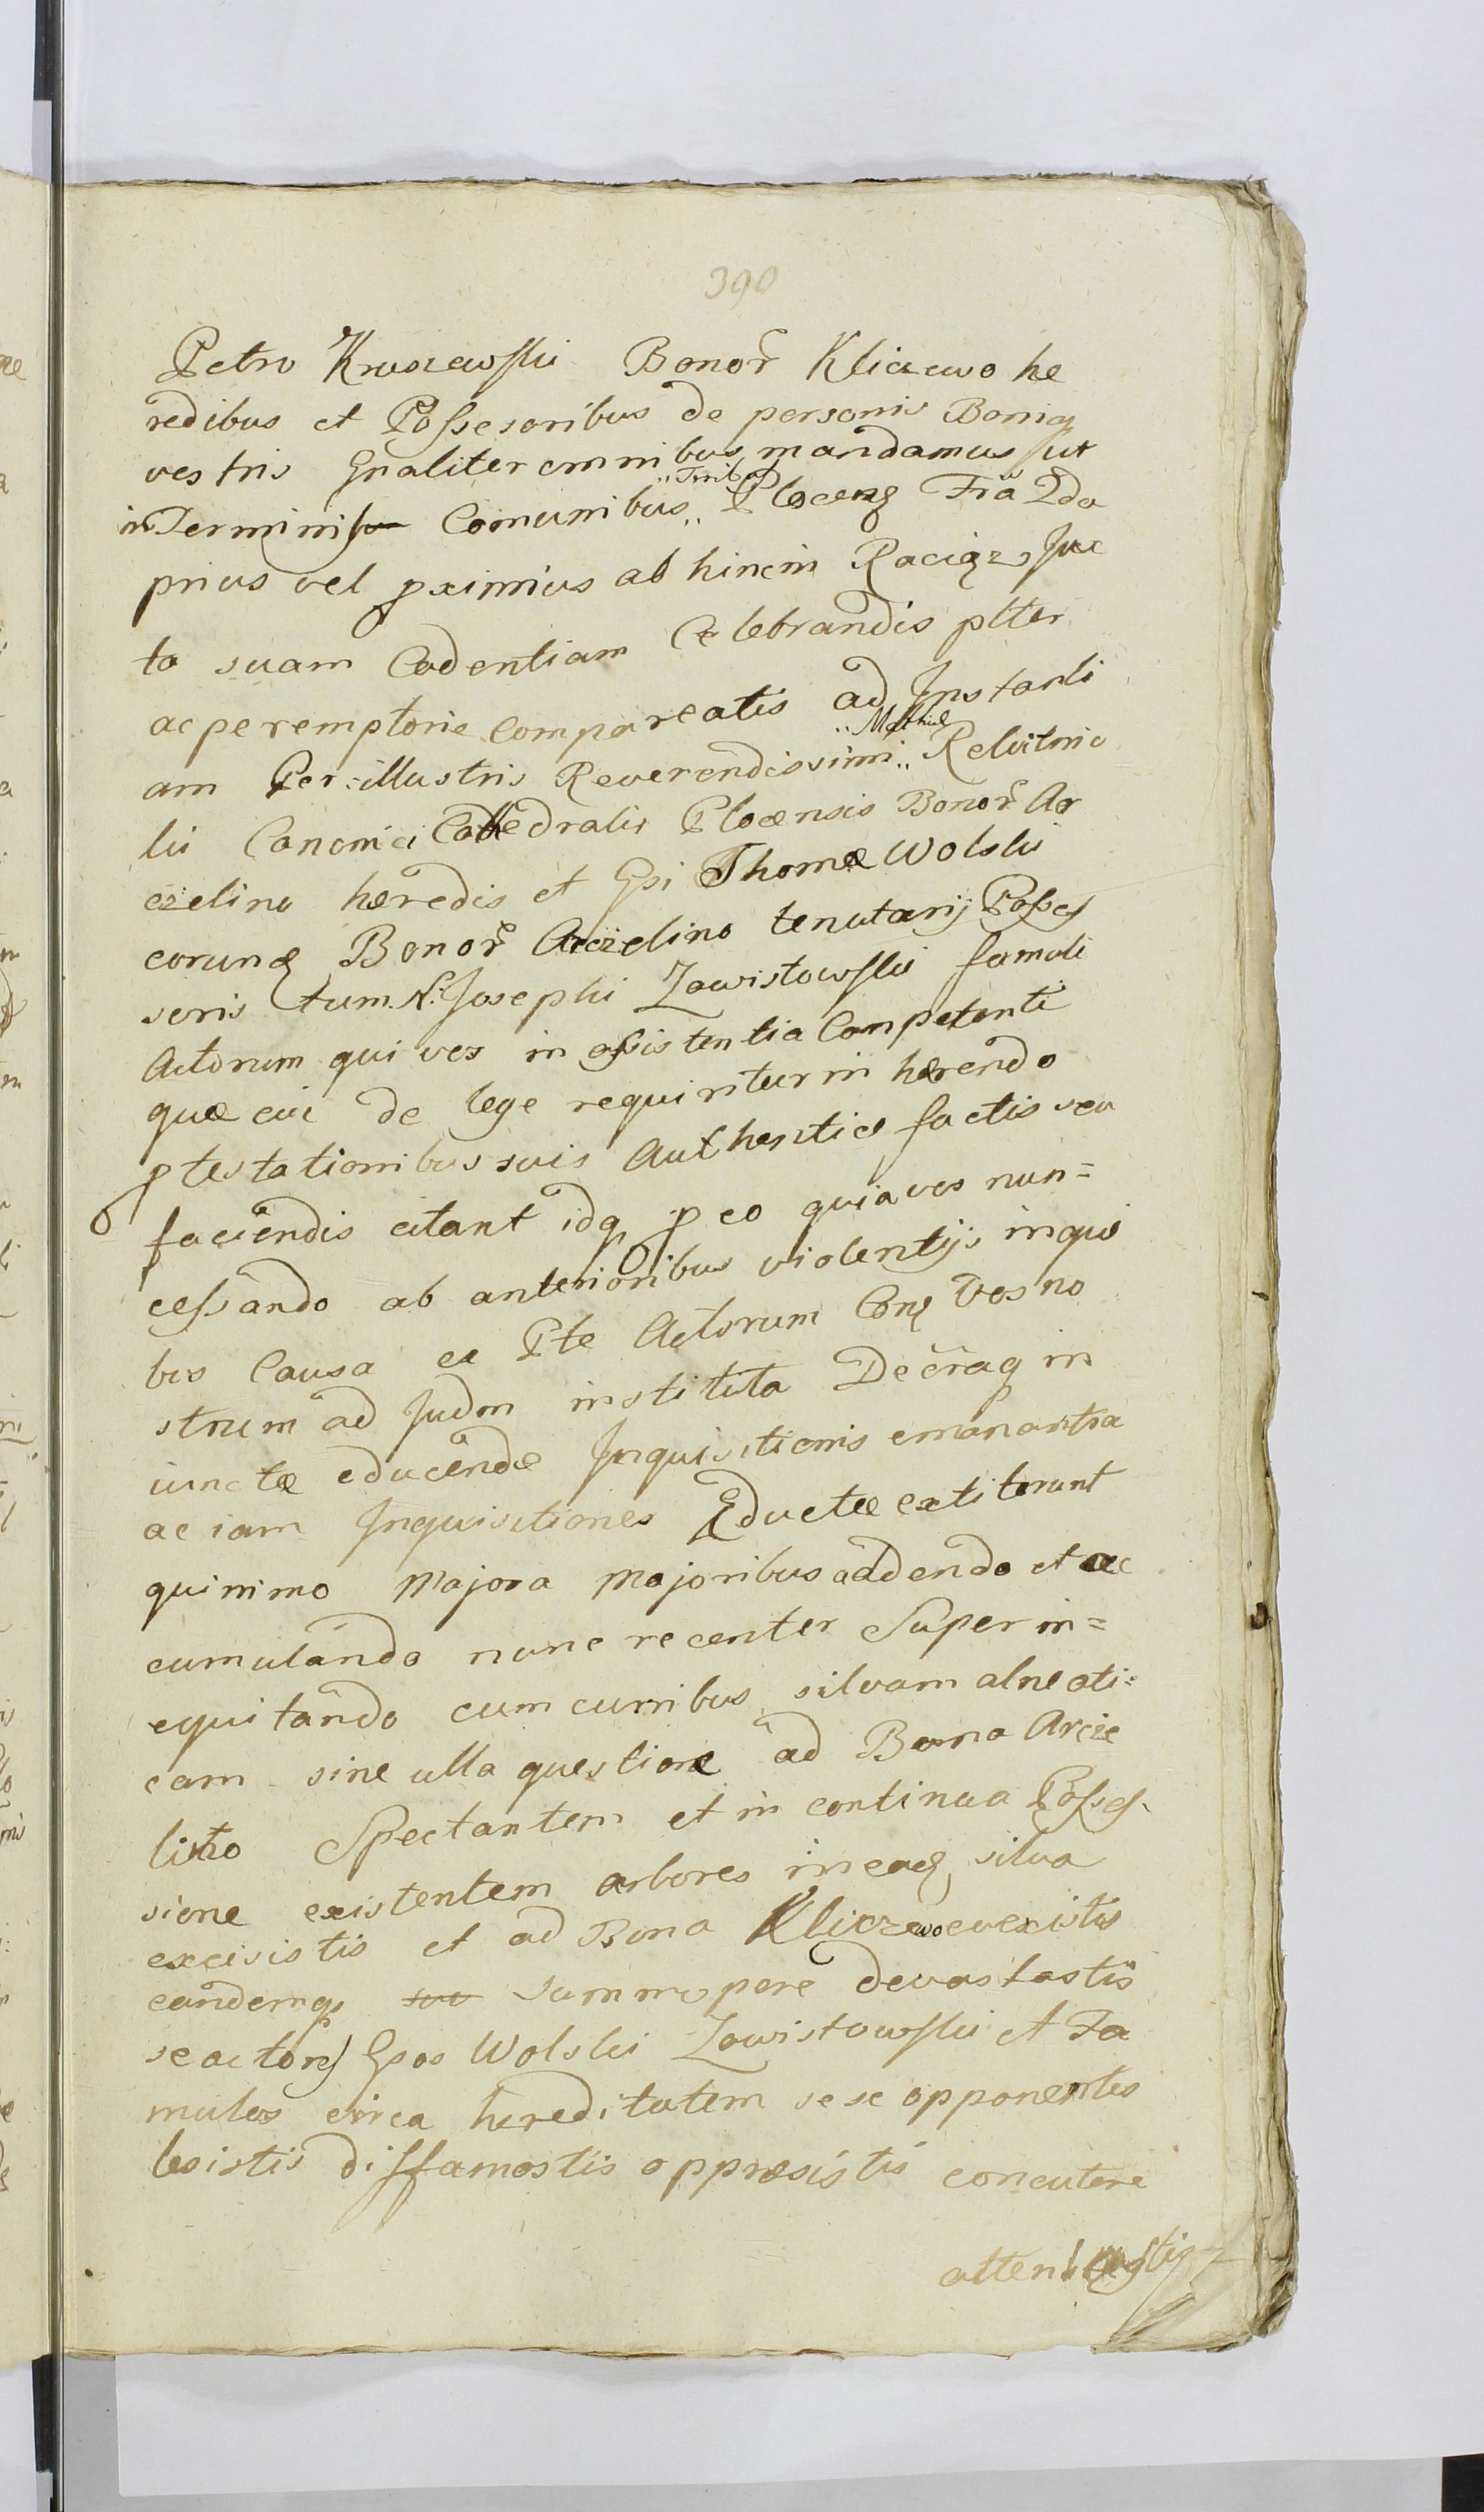 390
Petro Kruszewski Bonor̃ Kliczewo he
redibus et Possesoribus de personis Bonisq
vestris Gnaliter omnibus mandamus ut
in Terminis Comunibus „Tmĩbus„ Plocens Fria 2da
prius vel pximius ab hinc in Raciąz Jux
ta suam Cadentiam Celebrandis plter
ac peremptorie compareatis ad Instanti
am Per illustris Reverendissimi „Mathiæ„ Rokitnic
ki Canonici Cathedralis Plocensis Bonor̃ Ar
czelino hæredis et Gsi Thomæ Wolski
eorunq Bonor̃ Arczelino tenutarij Posses
soris tum N: Josephi Zawistowski famuli
Actorum qui vos in assistentia Competenti
quæ cui de lege requiritur in hærendo
ptestationibus suis Authentice factis seu
faciendis citant idq p eo quia vos non=
cessando ab anterioribus violentijs in quo
bus Causa ex Pte Actorum Conq Vos no
strum ad Judm instituta Decrãq in
iunctæ educendæ Inquisitionis emanantia
ac iam Inquisitiones Eductæ extiterunt
quinimo Majora Majoribus addendo et ac
cumulando nunc recenter Superin=
equitando cum curribus silvam alneati=
cam sine ulla questione ad Bona Arcze
lino Spectantem et in continua Posses
sione existentem arbores in eadq silva
excisistis et ad Bona Kliczewo evexistis
eandemq summopere devastastis
se actores Gsos Wolski Zawistowski et Fa
mulos circa hereditatem sese opponentes
læsistis diffamastis oppræsistis concutere
attentastis